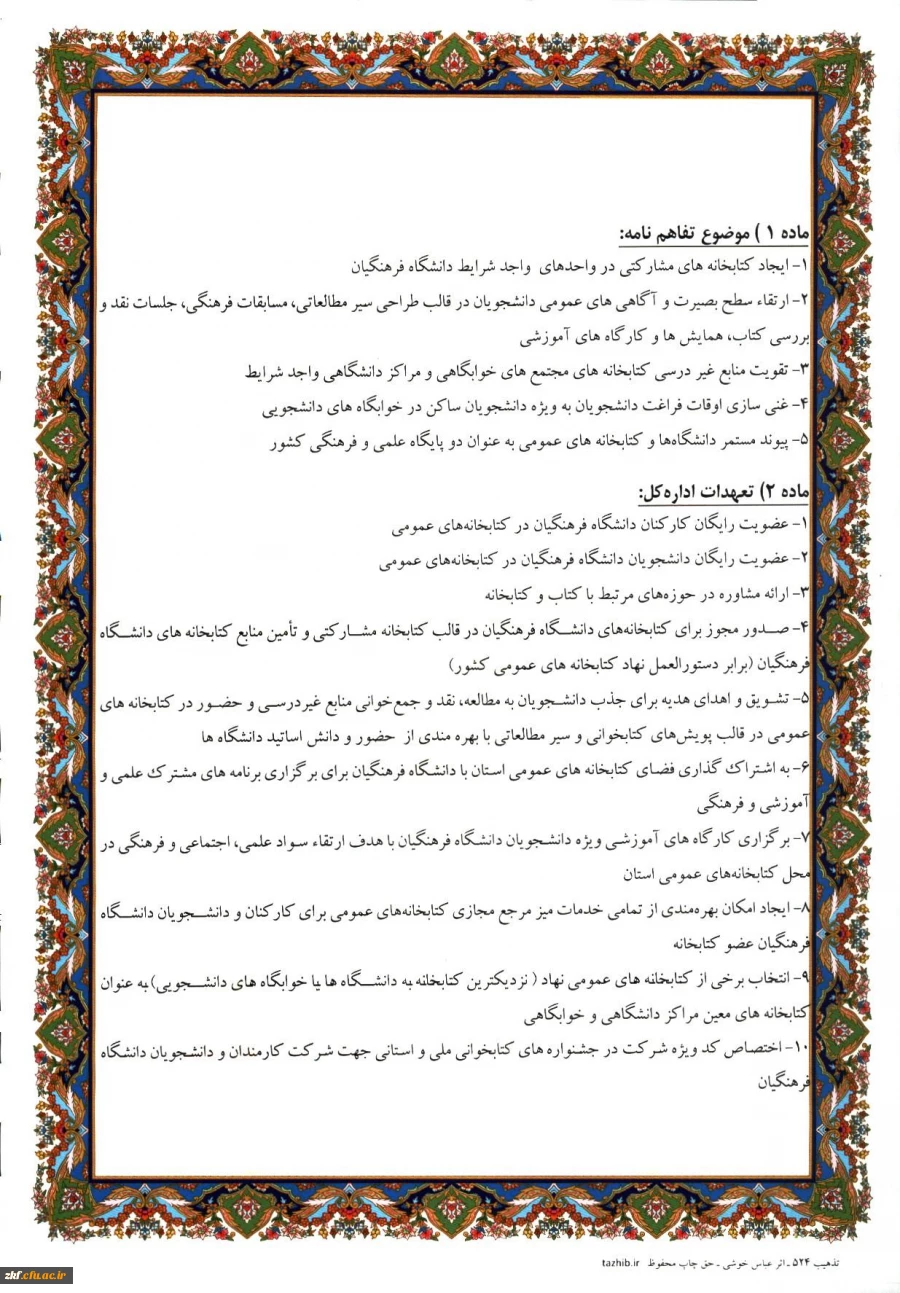 ماده ۱ ) موضوع تفاهم نامه:
۱- ایجاد کتابخانه های مشارکتی در واحدهای واجد شرایط دانشگاه فرهنگیان
۲- ارتقاء سطح بصیرت و آگاهی های عمومی دانشجویان در قالب طراحی سیر مطالعاتی، مسابقات فرهنگی، جلسات نقد و
بررسی کتاب، همایش ها و کارگاه های آموزشی
۳- تقویت منابع غیر درسی کتابخانه های مجتمع های خوابگاهی و مراکز دانشگاهی واجد شرایط
۴- غنی سازی اوقات فراغت دانشجویان به ویژه دانشجویان ساکن در خوابگاه های دانشجویی
۵- پیوند مستمر دانشگاه‌ها و کتابخانه های عمومی به عنوان دو پایگاه علمی و فرهنگی کشور
ماده ۲) تعهدات اداره‌کل:
۱- عضویت رایگان کارکنان دانشگاه فرهنگیان در کتابخانه‌های عمومی
۲- عضویت رایگان دانشجویان دانشگاه فرهنگیان در کتابخانه‌های عمومی
۳- ارائه مشاوره در حوزه‌های مرتبط با کتاب و کتابخانه
۴- صدور مجوز برای کتابخانه‌های دانشگاه فرهنگیان در قالب کتابخانه مشارکتی و تأمین منابع کتابخانه های دانشگاه
فرهنگیان (برابر دستورالعمل نهاد کتابخانه های عمومی کشور)
۵- تشویق و اهدای هدیه برای جذب دانشجویان به مطالعه، نقد و جمع‌خوانی منابع غیردرسی و حضور در کتابخانه های
عمومی در قالب پویش‌های کتابخوانی و سیر مطالعاتی با بهره مندی از حضور و دانش اساتید دانشگاه ها
۶- به اشتراک گذاری فضای کتابخانه های عمومی استان با دانشگاه فرهنگیان برای برگزاری برنامه های مشترک علمی و
آموزشی و فرهنگی
۷- برگزاری کارگاه های آموزشی ویژه دانشجویان دانشگاه فرهنگیان با هدف ارتقاء سواد علمی، اجتماعی و فرهنگی در
محل کتابخانه‌های عمومی استان
۸- ایجاد امکان بهره‌مندی از تمامی خدمات میز مرجع مجازی کتابخانه‌های عمومی برای کارکنان و دانشجویان دانشگاه
فرهنگیان عضو کتابخانه
۹- انتخاب برخی از کتابخانه های عمومی نهاد ( نزدیکترین کتابخانه به دانشگاه ها یا خوابگاه های دانشجویی)به عنوان
کتابخانه های معین مراکز دانشگاهی و خوابگاهی
۱۰- اختصاص کد ویژه شرکت در جشنواره های کتابخوانی ملی و استانی جهت شرکت کارمندان و دانشجویان دانشگاه
فرهنگیان
تذهیب ۵۲۴ ـ اثر عباس خوشی ـ حق چاپ محفوظ tazhib.ir
zkf.cfu.ac.ir